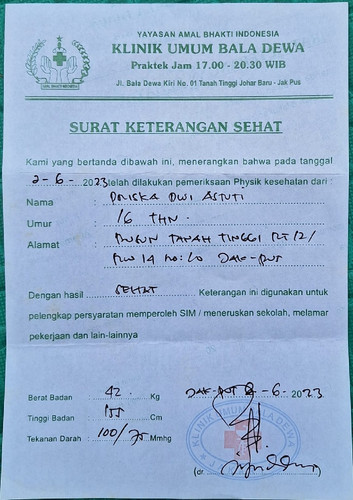 YAYASAN AMAL BHAKTI INDONESIA
KLINIK UMUM BALA DEWA
Praktek Jam 17.00 - 20.30 WIB
Jl. Bala Dewa Kiri No. 01 Tanah Tinggi Johar Baru - Jak Pus
SURAT KETERANGAN SEHAT
Kami yang bertanda dibawah ini, menerangkan bahwa pada tanggal
2-6-2023 telah dilakukan pemeriksaan Physik kesehatan dari :
Nama : PRISKA DWI ASTUTI
Umur : 16 THN.
Alamat : TANAH TINGGI RT 12/
RW 14 NO: JAK-PUT
Dengan hasil SEHAT Keterangan ini digunakan untuk
pelengkap persyaratan memperoleh SIM / meneruskan sekolah, melamar
pekerjaan dan lain-lainnya
Berat Badan : 42 Kg
Tinggi Badan : 155 Cm
Tekanan Darah : 100/75 Mmhg
JAK-PUT 2-6-2023
KLINIK UMUM BALA DEWA
(dr.